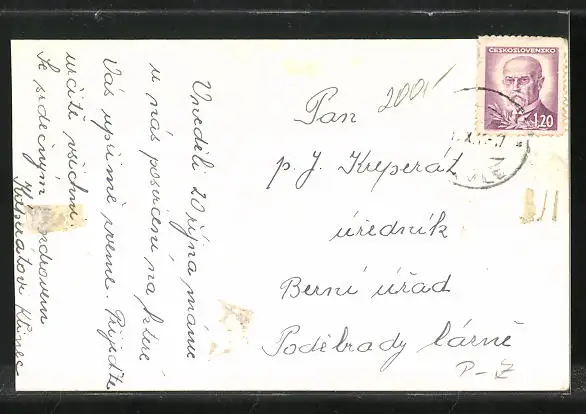 V neděli 20 října máme
u nás posvícení na které
Vás upřímě zveme. Přijeďte
určitě všichni.
Se srdečným pozdravem
Klinec
ČESKOSLOVENSKO
1.20
Pan 200
p. J. Kreperát
úředník
Berní úřad
Poděbrady lázně
P-